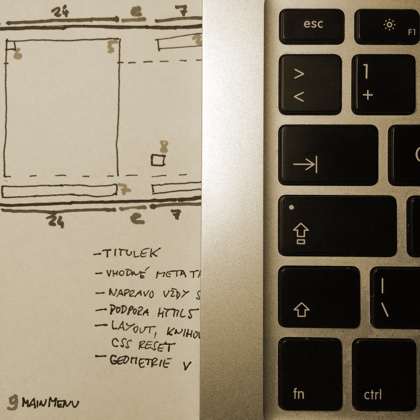 24 e 7
6 5
8
7
24 e 7
– TITULEK
– VHODNÉ META TA
– NAPRAVO VŽDY S
– PODPORA HTML5
– LAYOUT, KNIHO
CSS RESET
– GEOMETRIE V
9 MAIN MENU
esc
F1
> 1
< +
|
\
fn ctrl